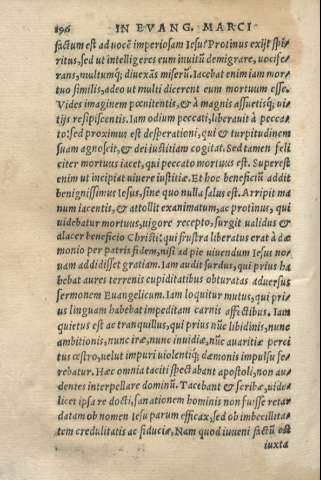 296 IN EVANG. MARCI
factum est ad vocē imperiosam Iesu? Protinus exijt spi-
ritus, sed ut intelligeres eum invitū demigrare, vocife-
rans, multumq; divexās miserū. Iacebat enim iam mor-
tuo similis, adeo ut multi dicerent eum mortuum esse.
Vides imaginem pœnitentis, & à magnis assuetisq; vi-
tijs resipiscentis. Iam odium peccati, liberavit à pecca-
to: sed proximus est desperationi, qui & turpitudinem
suam agnoscit, & dei iustitiam cogitat. Sed tamen feli
citer mortuus iacet, qui peccato mortuus est. Superest
enim ut incipiat vivere iustitiæ. Et hoc beneficiū addit
benignissimus Iesus, sine quo nulla salus est. Arripit ma
num iacentis, & attollit exanimatum, ac protinus, qui
videbatur mortuus, vigore recepto, surgit validus &
alacer beneficio Christi: qui frustra liberatus erat à dæ
monio per patris fidem, nisi ad pie vivendum Iesus no-
vam addidisset gratiam. Iam audit surdus, qui prius ha
bebat aures terrenis cupiditatibus obturatas adversus
sermonem Euangelicum. Iam loquitur mutus, qui pri-
us linguam habebat impeditam carnis affectibus. Iam
quietus est ac tranquillus, qui prius nūc libidinis, nunc
ambitionis, nunc iræ, nunc invidiæ, nūc avaritiæ perci
tus œstro, velut impuri violentiq; dæmonis impulsu fe-
rebatur. Hæc omnia taciti spectabant apostoli, non au-
dentes interpellare dominū. Tacebant & scribæ, vide-
licet ipsa re docti, sanationem hominis non fuisse retar
datam ob nomen Iesu parum efficax, sed ob imbecillita-
tem credulitatis ac fiduciæ. Nam quod iuveni factū est
iuxta